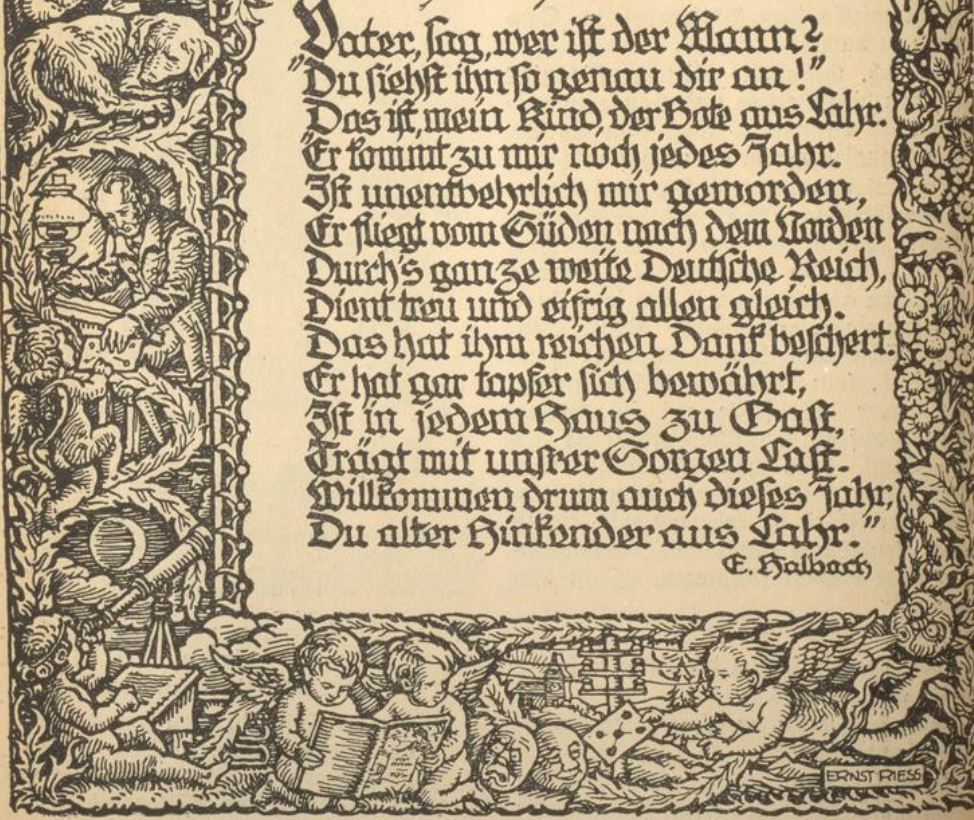 Vater, sag, wer ist der Mann?
"Du siehst ihn so genau dir an!"
Das ist, mein Kind, der Bote aus Lahr.
"Er kommt zu mir noch jedes Jahr.
Ist unentbehrlich mir geworden,
Er fliegt vom Süden nach dem Norden
Durch's ganze weite Deutsche Reich,
Dient treu und eifrig allen gleich.
Das hat ihm reichen Dank beschert.
Er hat gar tapfer sich bewährt,
Ist in jedem Haus zu Gast,
Trägt mit unsrer Sorgen Last.
Willkommen drum auch dieses Jahr,
Du alter Hinkender aus Lahr."
E. Halbach
ERNST RIESS